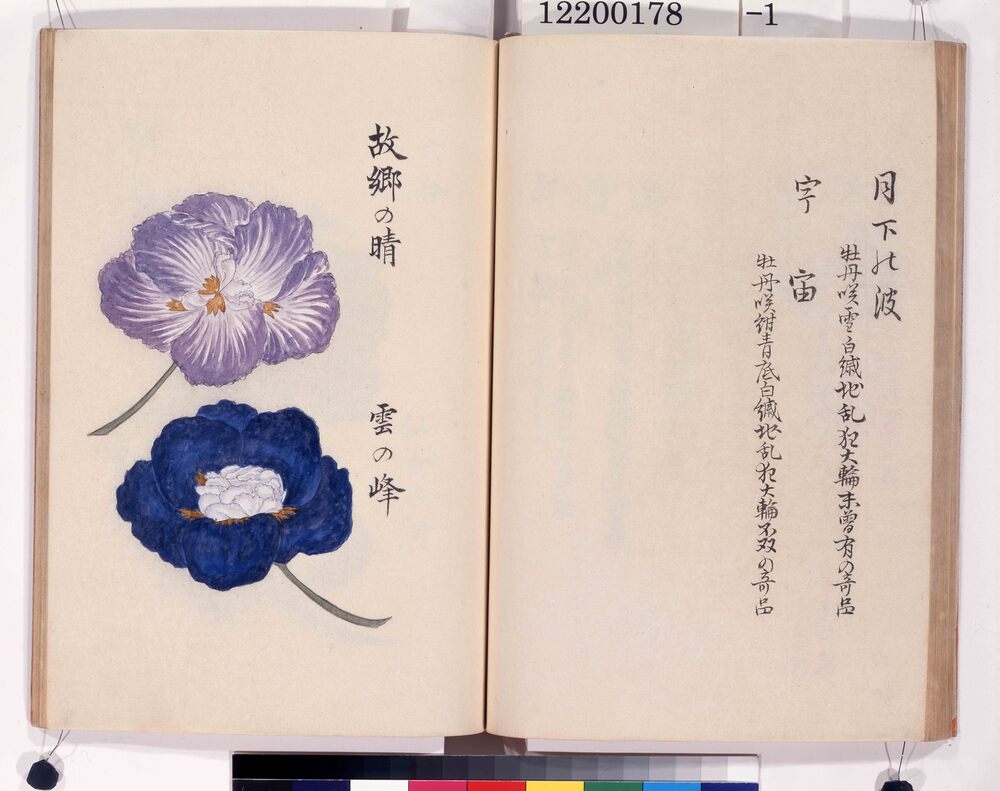 12200178 -1
月下の波
牡丹咲雪白緘地乱狂大輪未曽有の奇品
宇宙
牡丹咲紺青底白緘地乱狂大輪不双の奇品
故郷の晴
雲の峰